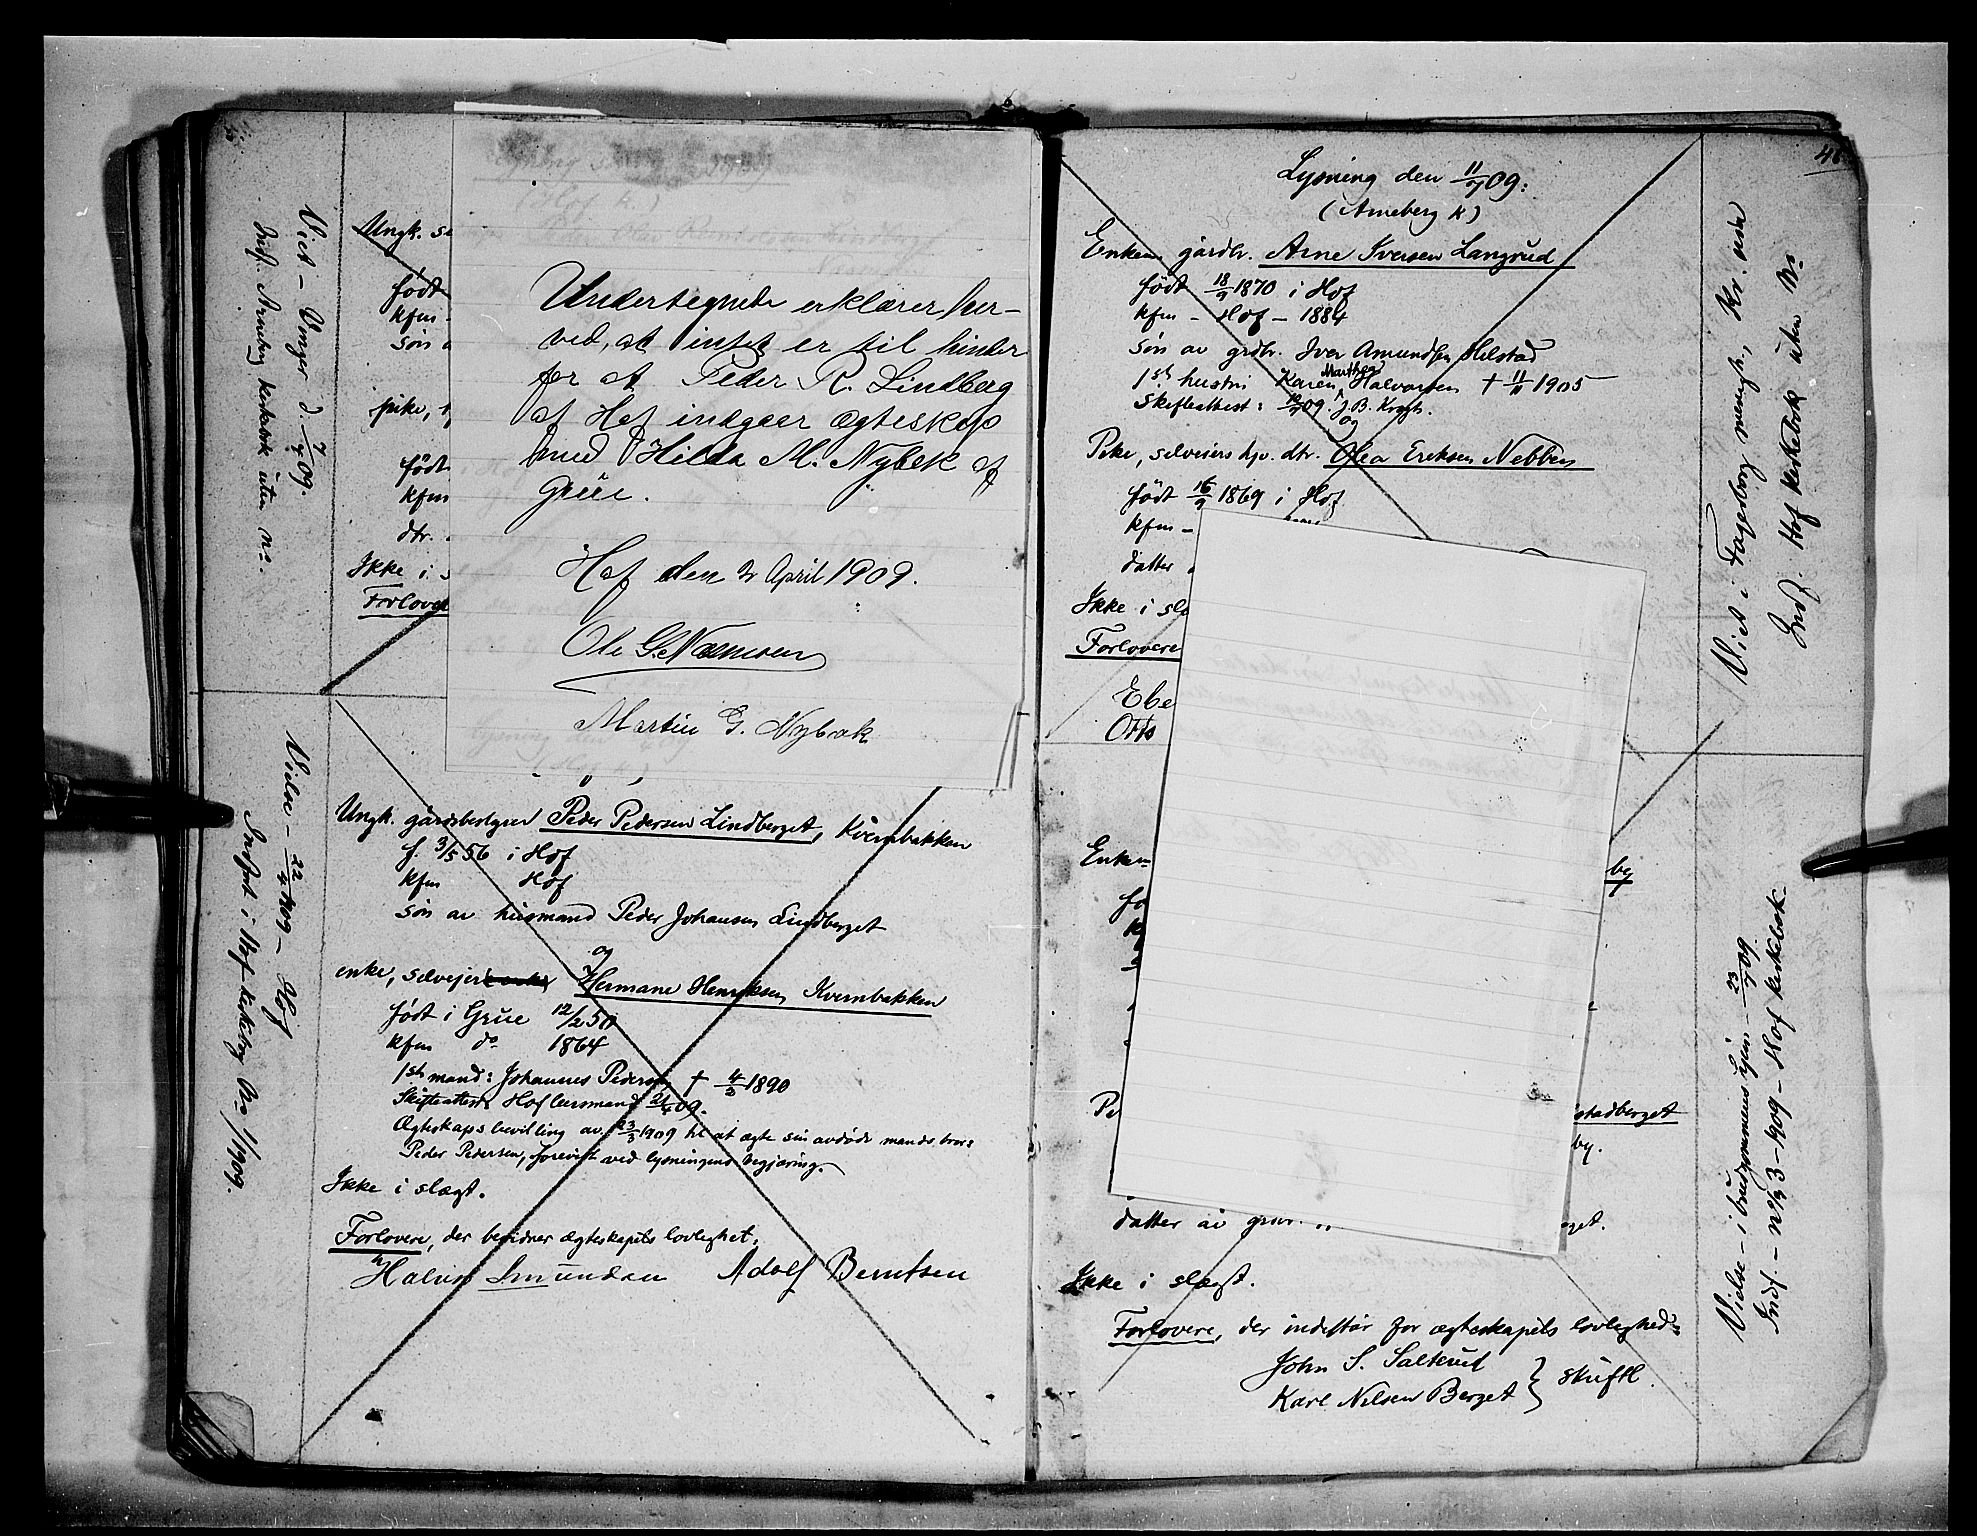 Viet – Vinger d. 7/4 09.
Indf. Arneberg kirkebok uten no.
Ungk. se
født
kfm –
søn a
pike,
født
kfm
dtr.
Ikke i s
Forlover
Undertegnede erklærer her–
ved, at intet er til hinder
for at Peder R. Lindberg
af Hof indgaar ægteskap
med Hilda M. Nybek af
Grue.
Hof den 2 April 1909.
Ole G. Næmoen
Martin G. Nybak
Vielse – 22/4 1909 – Hof
Indført i Hof kirkebog No 1/1909.
Ungk. gårdsbestyrer Peder Pedersen Lindberget, Kvernbakken
f. 3/5 56 i Hof
kfm Hof
søn av husmand Peder Johansen Lindberget
og
enke, selveier Hermane Henriksen Kvernbakken
født i Grue 12/2 50
kfm do 1864
1ste mand: Johannes Pedersen † 4/3 1890
Skifteattest: Hof lensmand 21/4 09.
Ægteskapsbevilling av 23/3 1909 til at ægte sin avdøde mands bror:
Peder Pedersen, forevist ved lysningens begjæring.
Ikke i slægt.
Forlovere, der bevidner ægteskapets lovlighet:
Halvor Amundsen Adolf Berntsen
46
Lysning den 11/7 09:
(Arneberg k)
Enkem. gårdbr. Arne Iversen Langrud
født 18/9 1870 i Hof
kfm – Hof – 1884
søn av grdbr. Iver Amundsen Helstad
1ste hustru Karen Marthea Halvorsen † 11/11 1905
skifteattest: 12/7 09. J. B. Krogh.
og
Pike, selveiers hjv. dtr. Olea Eriksen Nebben
født 16/9 1869 i Hof
kfm –
datter
Ikke i slæ
Forlovere
Ebe
Otto
Viet i Fagerborg menigh., Kr.ania
Indf. Hof kirkebok uten No
Enkem
by
fø
k
Pe
stadberget
by.
datter av
rget.
Ikke i slægt.
Forlovere, der indestår for ægteskapets lovlighed:
John S. Salterud
Karl Nilsen Berget } skriftl.
Vielse – i brudgommens hjem – 23/7 09.
Indf. – no 3 – 1909 – Hof kirkebok.